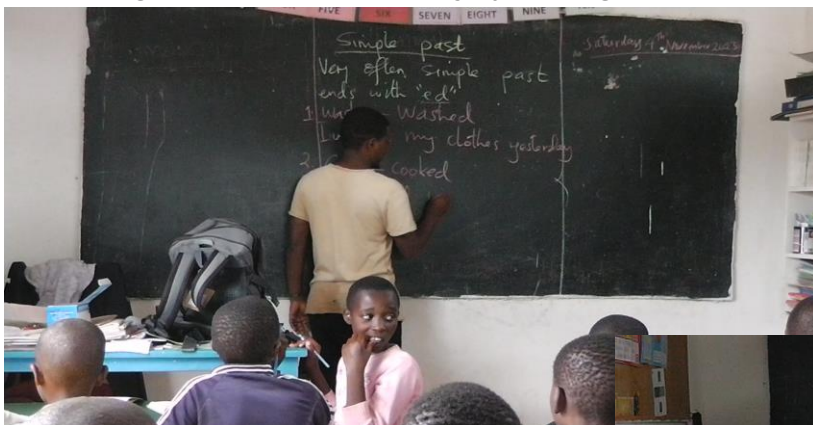 FIVE
SIX
SEVEN
EIGHT
NINE
Simple past
Very often, simple past
ends with "ed"
1. Washed
my clothes yesterday
2. cooked
Saturday 4th November 2023